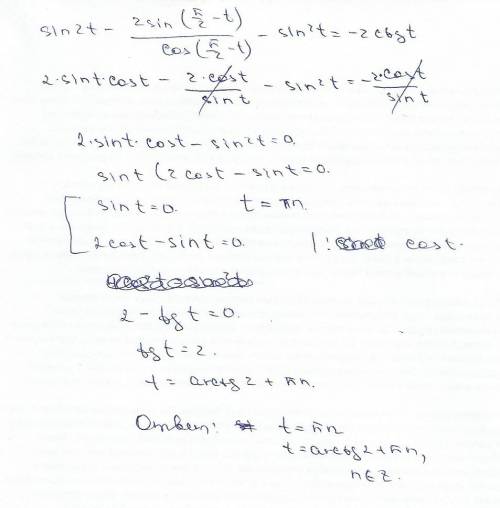 sin2t - 2sin(π/2 - t)/cos(π/2 - t) - sin²t = -2ctgt
2·sint·cost - 2·cost/sint - sin²t = -2·cost/sint
2·sint·cost - sin²t = 0.
sint (2cost - sint = 0.
sint = 0. t = πn.
2cost - sint = 0. |: cost.
2 - tgt = 0.
tgt = 2.
t = arctg2 + πn.
Ответ: t = πn
t = arctg2 + πn,
n∈Z.